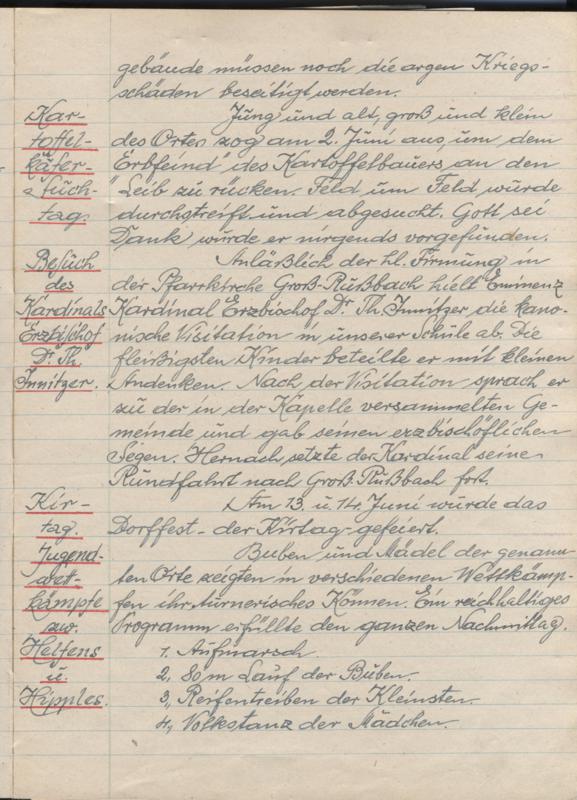 gebäude müssen noch die argen Kriegs-
schäden beseitigt werden.
Kar-
toffel-
käfer-
such-
tag.
Jung und alt, groß und klein
des Ortes zog am 2. Juni aus, um dem
"Erbfeind" des Kartoffelbauers an den
Leib zu rücken. Feld um Feld wurde
durchstreift und abgesucht. Gott sei
Dank wurde er nirgends vorgefunden.
Besuch
des
Kardinals
Erzbischof
Dr. Th.
Innitzer.
Anläßlich der hl. Firmung in
der Pfarrkirche Groß-Rußbach hielt Eminenz
Kardinal Erzbischof Dr. Th. Innitzer die kano-
nische Visitation in unserer Schule ab. Die
fleißigsten Kinder beteilte er mit kleinen
Andenken. Nach der Visitation sprach er
zu der in der Kapelle versammelten Ge-
meinde und gab seinen erzbischöflichen
Segen. Hernach setzte der Kardinal seine
Rundfahrt nach Groß-Rußbach fort.
Kir-
tag.
Am 13. u. 14. Juni wurde das
Dorffest - der Kirtag - gefeiert.
Jugend-
wett-
kämpfe
zw.
Helfens
u.
Hipples.
Buben und Mädel der genann-
ten Orte zeigten in verschiedenen Wettkämp-
fen ihr turnerisches Können. Ein reichhaltiges
Programm erfüllte den ganzen Nachmittag.
1, Aufmarsch.
2, 80 m Lauf der Buben.
3, Reifentreiben der Kleinsten.
4, Volkstanz der Mädchen.